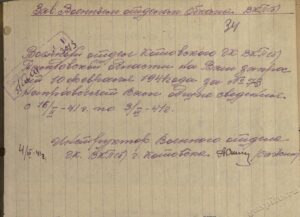 Зав. Военным отделом Обкома ВКП(б)
34
Военный отдел Котовского ГК ВКП(б)
Тамбовской области на Ваш запрос
от 10 февраля 1941 года за № 73
направляет Вам общие сведения
с 16/II-41 г. по 3/III-41 г.
4/III-41 г.
Инструктор Военного отдела
ГК. ВКП(б) г. Котовска